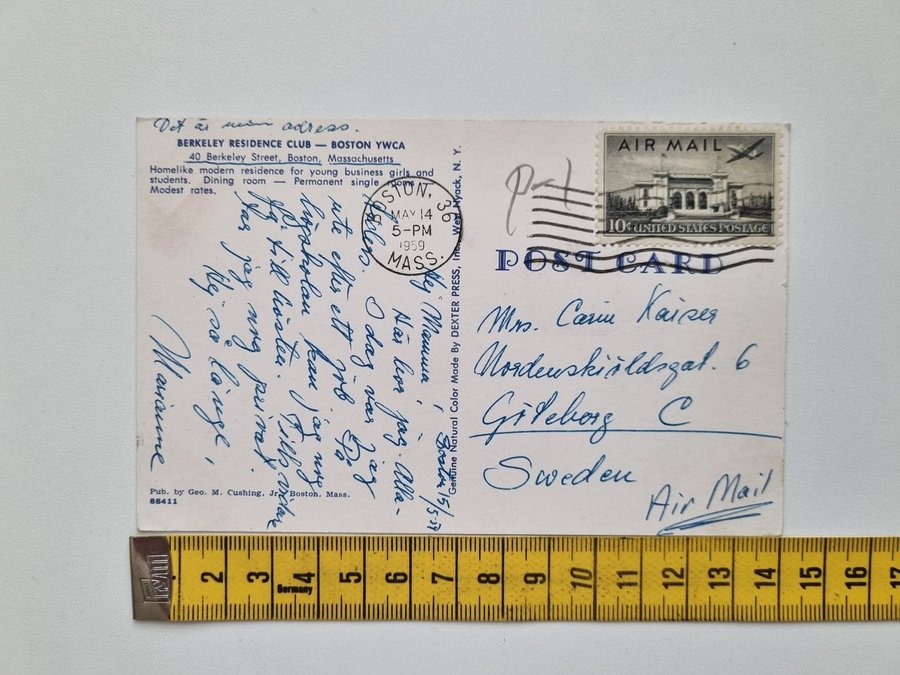 Det är min adress.
BERKELEY RESIDENCE CLUB — BOSTON YWCA
40 Berkeley Street, Boston, Massachusetts
Homelike modern residence for young business girls and
students. Dining room — Permanent single rooms
Modest rates.
BOSTON, 36
MAY 14
5-PM
1959
MASS.
AIR MAIL
10¢ UNITED STATES POSTAGE
POST CARD
Boston 15/5
Hej Mamma!
Här bor jag. Alla-
I dag var jag
ute efter ett job. På
högskolan kan jag nog
få till hösten. Tillsvidare
jag nog privat.
Hej så länge,
Marianne
Genuine Natural Color Made By DEXTER PRESS, Inc. West Nyack, N. Y.
Mrs. Carin Kaiser
Nordenskiöldsgat. 6
Göteborg C
Sweden
Air Mail
Pub. by Geo. M. Cushing, Jr., Boston, Mass.
88411
2 3 4 5 6 7 8 9 10 11 12 13 14 15 16
Germany